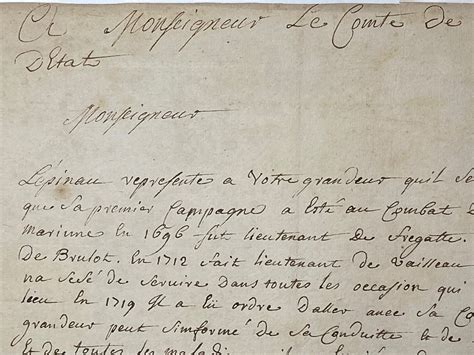 A Monseigneur Le Comte de
DEtat
Monseigneur
Lépinau represente a Votre grandeur quil se
que Sa premier Campagne a Esté au Combat
marinne En 1696 fut lieutenant De fregatte
De Brulot. En 1712 fait lieutenant de Vaisseau
na sesé de Servire Dans toutes les occasion qui
lieu En 1719 Il a Eü ordre Daller avec Sa Co
grandeur peut Simformé de Sa Conduitte et
Et des toutes les maladi